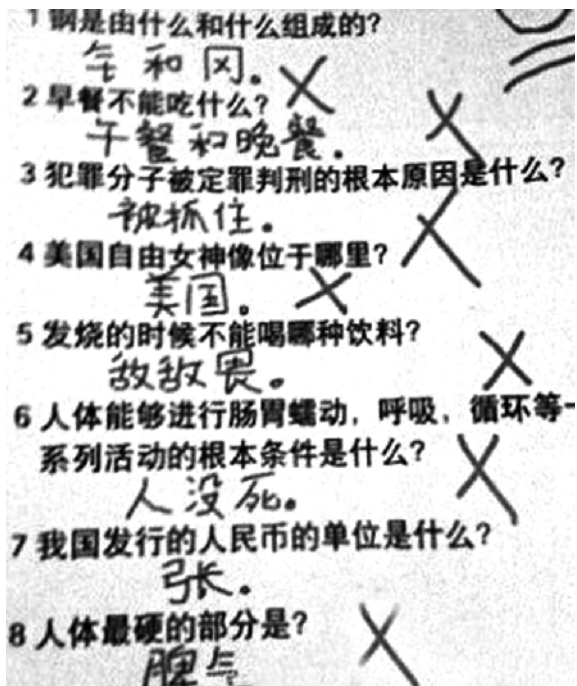 1 钢是由什么和什么组成的?
钅和冈。
2 早餐不能吃什么?
午餐和晚餐.
3 犯罪分子被定罪判刑的根本原因是什么?
被抓住。
4 美国自由女神像位于哪里?
美国。
5 发烧的时候不能喝哪种饮料?
敌敌畏。
6 人体能够进行肠胃蠕动，呼吸，循环等一
系列活动的根本条件是什么?
人没死。
7 我国发行的人民币的单位是什么?
张。
8 人体最硬的部分是?
脾气